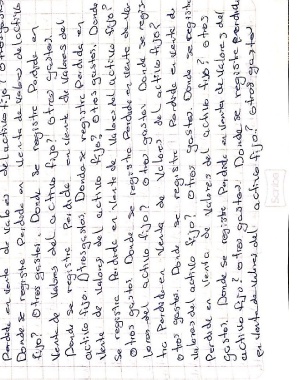 Perdida en venta de valores del activo fijo? Otros gastos.
Donde se registra Perdida en Venta de valores del activo
fijo? Otros gastos. Donde se registra Perdida en
Venta de Valores del activo fijo? Otros gastos.
Donde se registra Perdida en Venta de Valores del
activo fijo. Otros gastos. Donde se registra Perdida en
Venta de valores del activo fijo? Otros gastos. Donde
se registra Perdida en Venta de Valores del activo fijo?
Otros gastos. Donde se registra Perdida en venta de Va-
lores del activo fijo? Otros gastos. Donde se regis-
tra Perdida en Venta de Valores del activo fijo?
Otros gastos. Donde se registra Perdida en Venta de
Valores del activo fijo? Otros gastos. Donde se registra
Perdida en venta de Valores del activo fijo? Otros
gastos. Donde se registra Perdida en Venta de Valores del
activo fijo? otros gastos. Donde se registra perdida
en Venta de Valores del activo fijo? Otros gastos